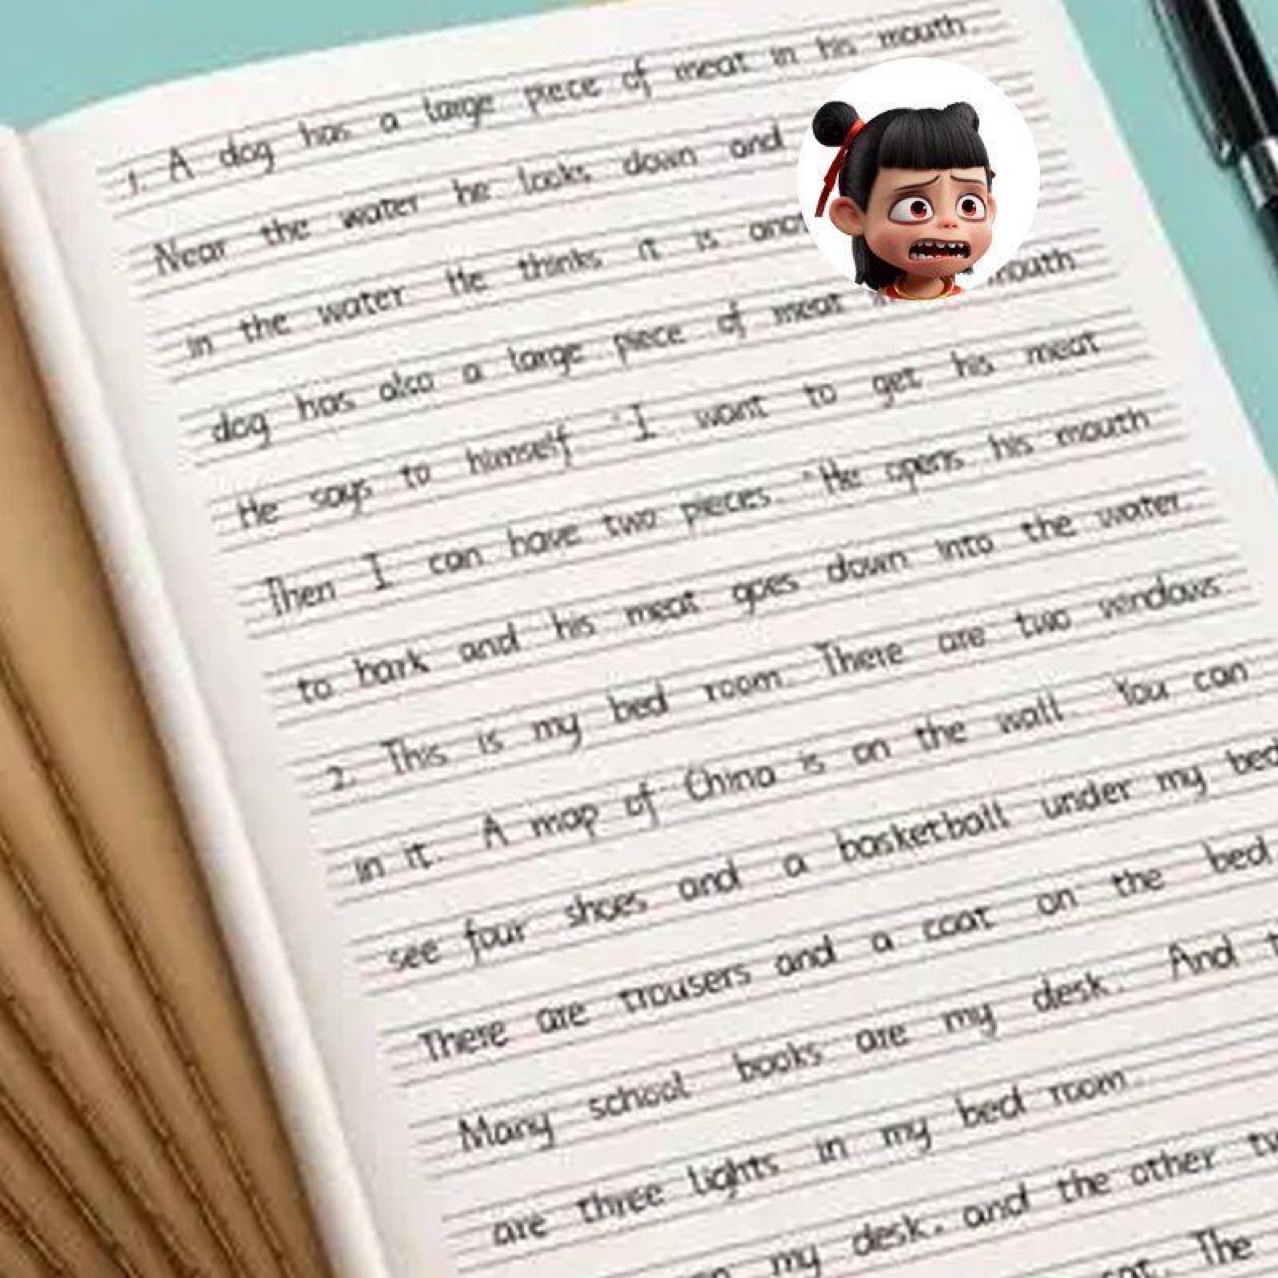 1. A dog has a large piece of meat in his mouth.
Near the water he looks down and
in the water He thinks it is
dog has also a large piece of meat mouth
He says to himself "I want to get his meat
Then I can have two pieces. "He opens his mouth
to bark and his meat goes down into the water.
2. This is my bed room. There are two windows
in it. A map of China is on the wall. You can
see four shoes and a basketball under my bed
There are trousers and a coat on the bed.
Many school books are my desk. And
are three lights in my bed room.
my desk. and the other
The